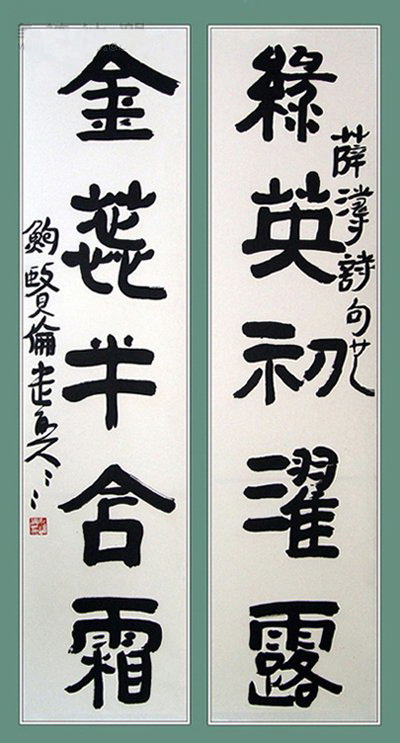 綠英初濯露
薛濤詩句
金蕊半含霜
鮑賢倫